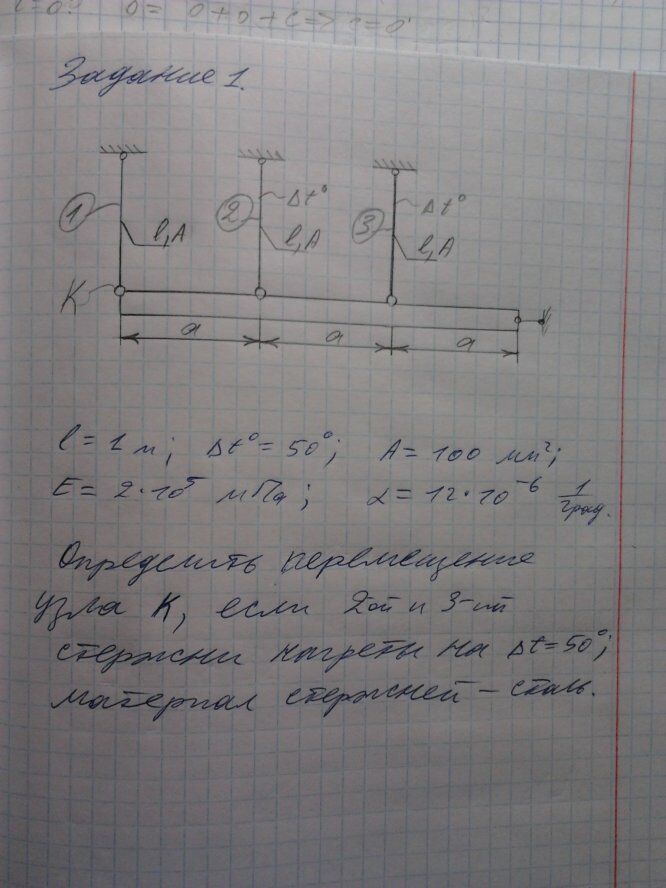 0 = 0 + 0 + c =>
Задание 1.
1
2
Δt°
3
Δt°
l, A
l, A
l, A
K
a
a
a
l = 1 м; Δt° = 50°; A = 100 мм²;
E = 2·10⁵ мПа; α = 12·10⁻⁶ 1/град.
Определить перемещение
узла К, если 2ой и 3-ий
стержни нагреты на Δt=50°;
материал стержней – сталь.